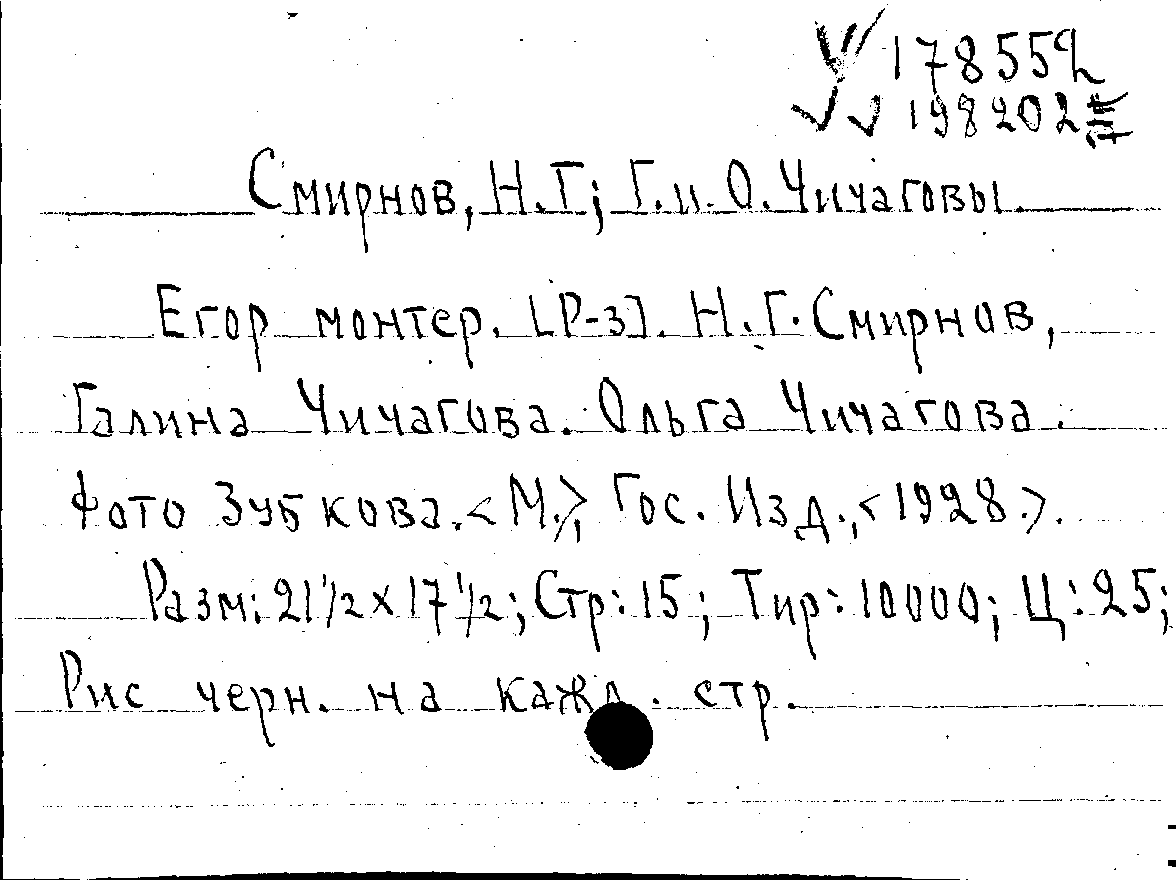 178552
198202
Смирнов, Н.Г; Г. и О. Чичаговы.
Егор монтер. [Р-з]. Н.Г. Смирнов,
Галина Чичагова. Ольга Чичагова.
Фото Зубкова. <М.>, Гос. Изд., <1928.>.
Разм: 21 1/2 х 17 1/2; Стр: 15; Тир: 10000; Ц: 25;
Рис черн. на кажд. стр.